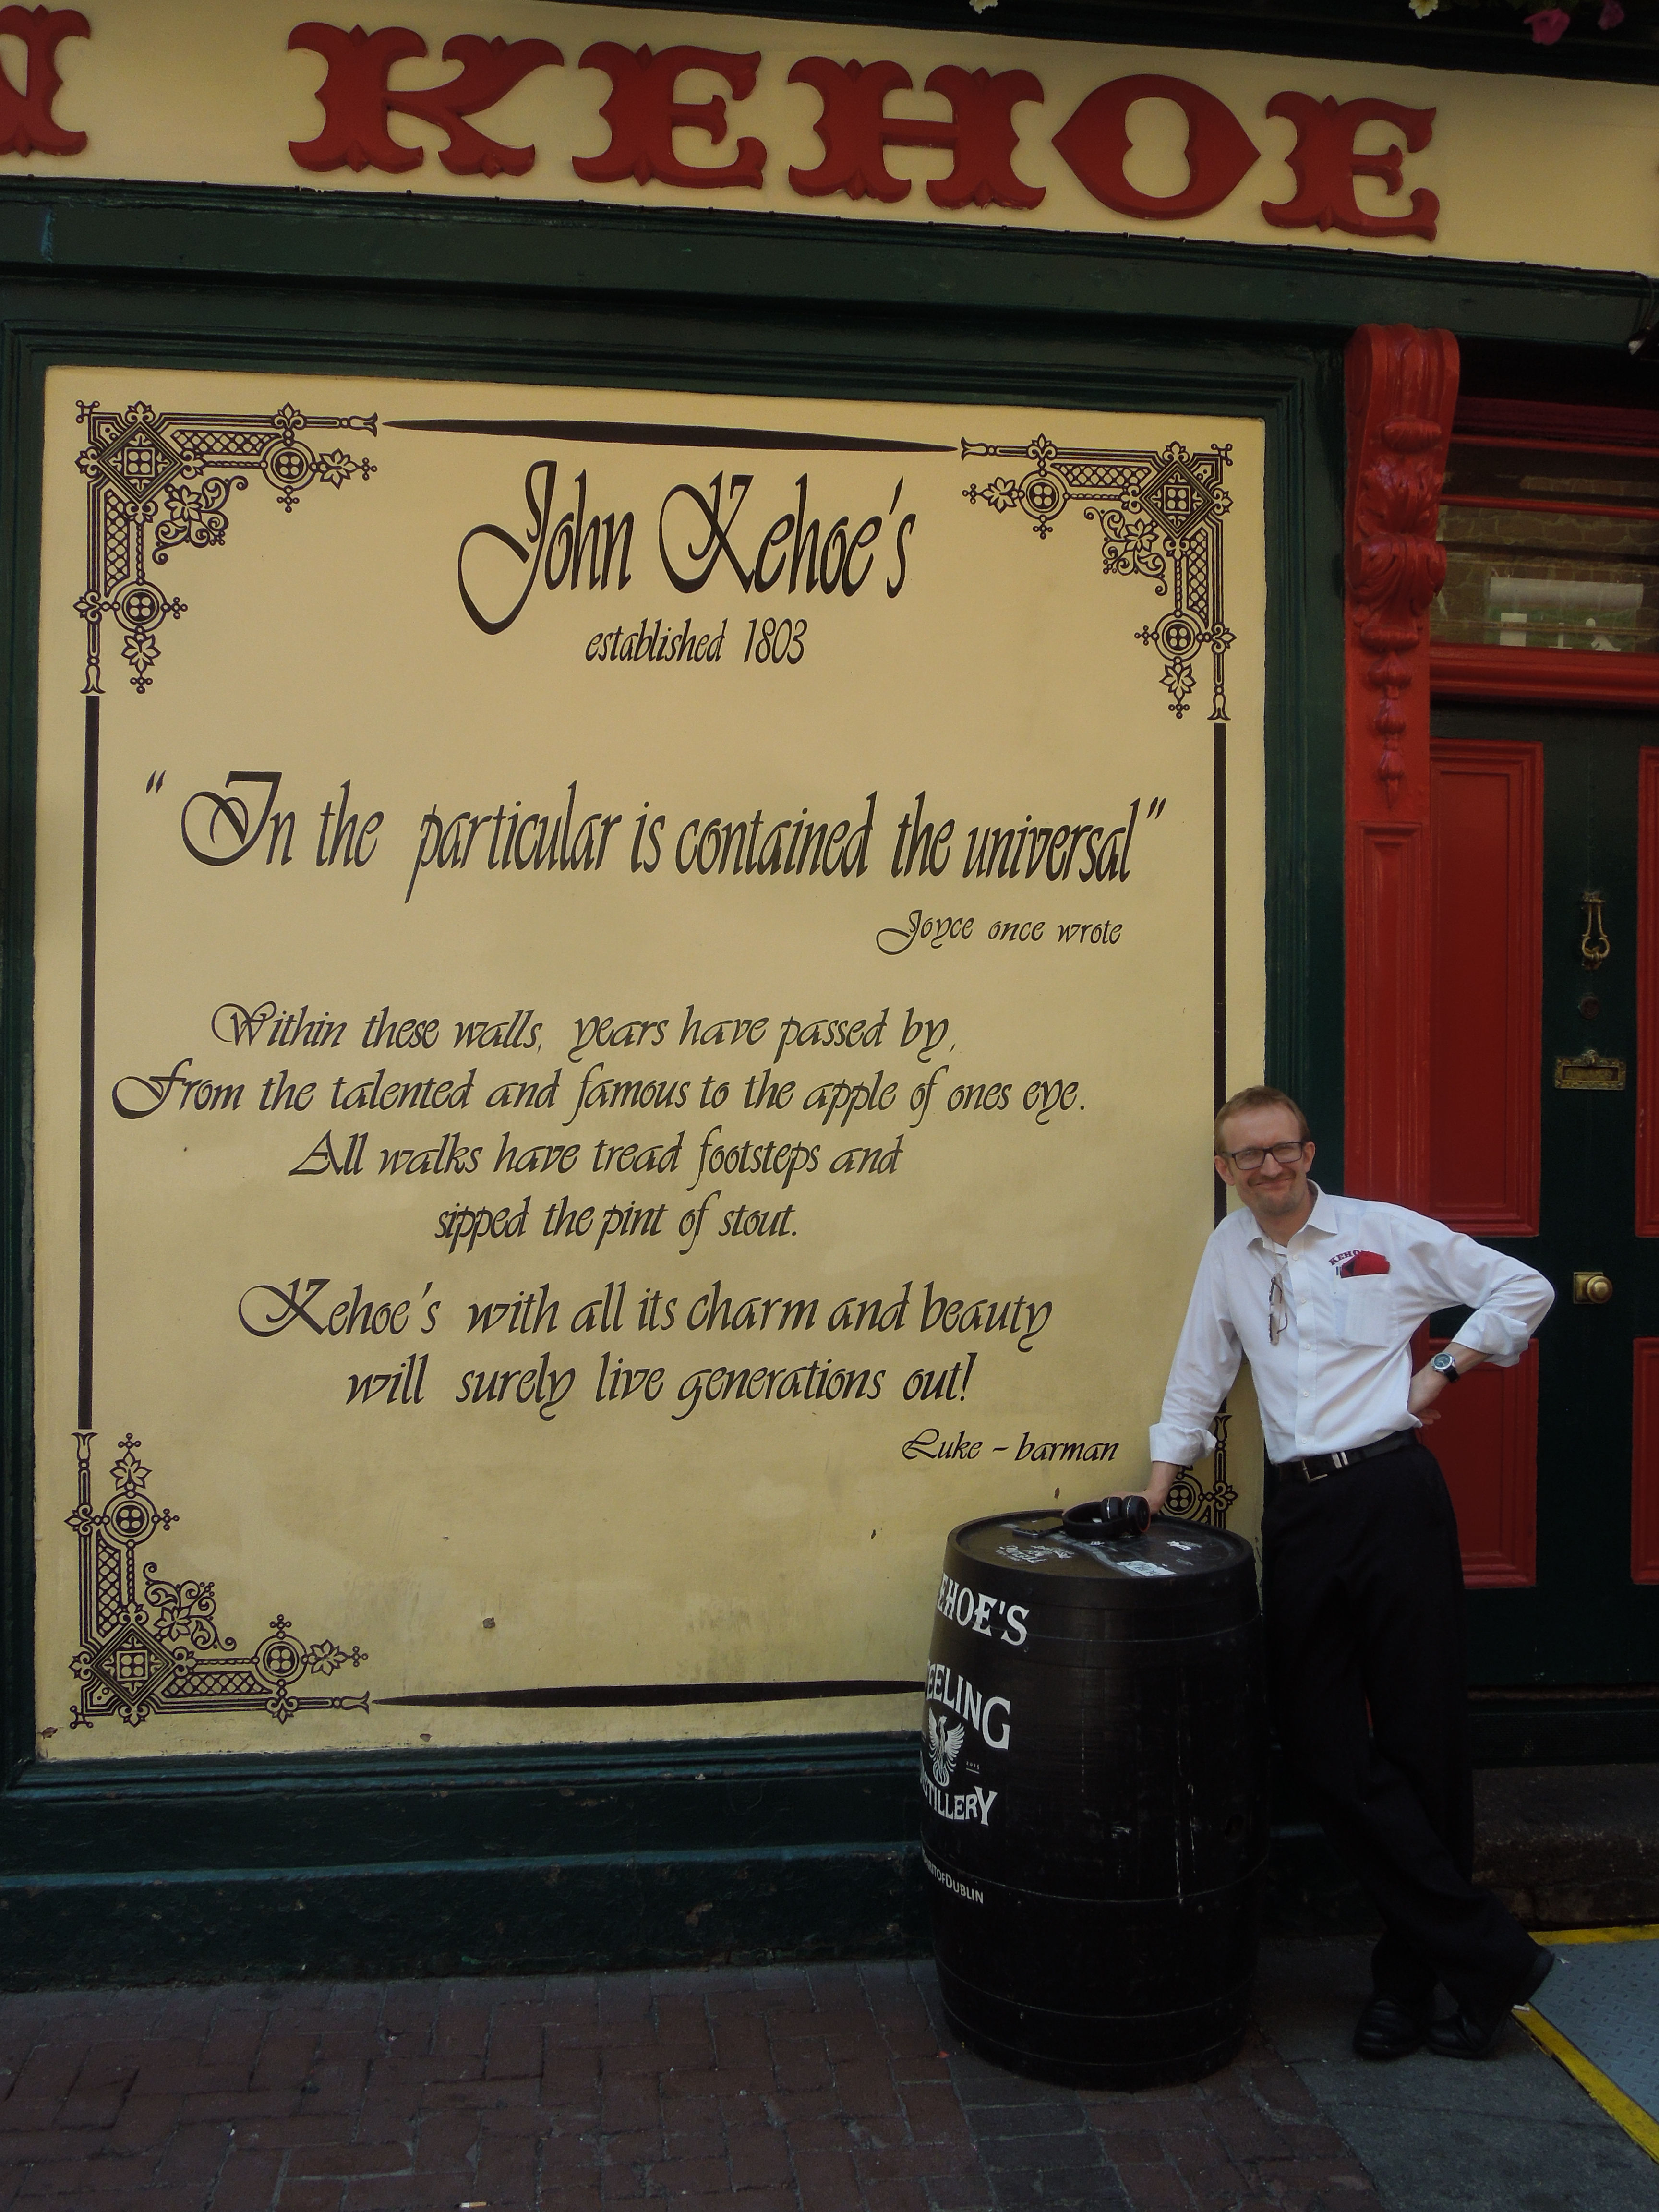 N KEHOE
John Kehoe's
established 1803
“ In the particular is contained the universal”
Joyce once wrote
Within these walls, years have passed by,
From the talented and famous to the apple of ones eye.
All walks have tread footsteps and
sipped the pint of stout.
Kehoe's with all its charm and beauty
will surely live generations out!
Luke - barman
KEHO
EHOE'S
EELING
TILLERY
OFDUBLIN